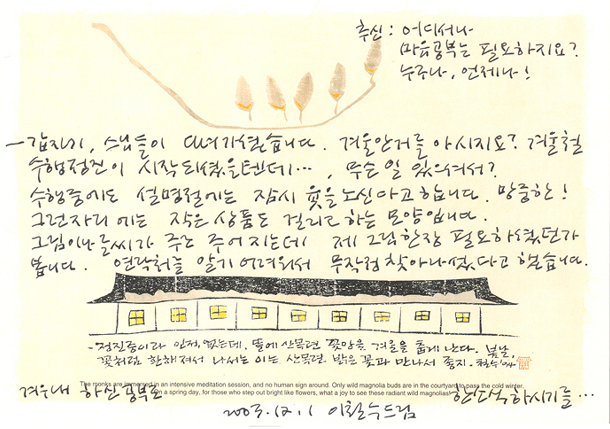 추신: 어디서나
마음공부는 필요하지요?
누구나, 언제나!
- 갑자기, 스님들이 다녀가셨습니다. 겨울안거를 아시지요? 겨울철
수행정진이 시작되셨을텐데…, 무슨 일 있으셔서?
수행중에도 설명절에는 잠시 윷을 노신다고 합니다. 망중한!
그런 자리에는 작은 상품도 걸리고 하는 모양입니다.
그림이나 글씨가 주로 주어지는데 제 그림 한장 필요하셨던가
봅니다. 연락처를 알기 어려워서 무작정 찾아나섰다고 했습니다.
- 정진중이라 인적 없는데, 뜰에 산목련 꽃망울 겨울을 춥게 난다. 봄날,
꽃처럼 환해져서 나서는 이는 산목련 밝은 꽃과 만나서 좋지.
The monks are immersed in an intensive meditation session, and no human sign around. Only wild magnolia buds are in the courtyard to pass the cold winter.
a spring day, for those who step out bright like flowers, what a joy to see these radiant wild magnolias!
겨우내 하신 공부도 한소식 하시기를…
2003.12.1 이철수드림